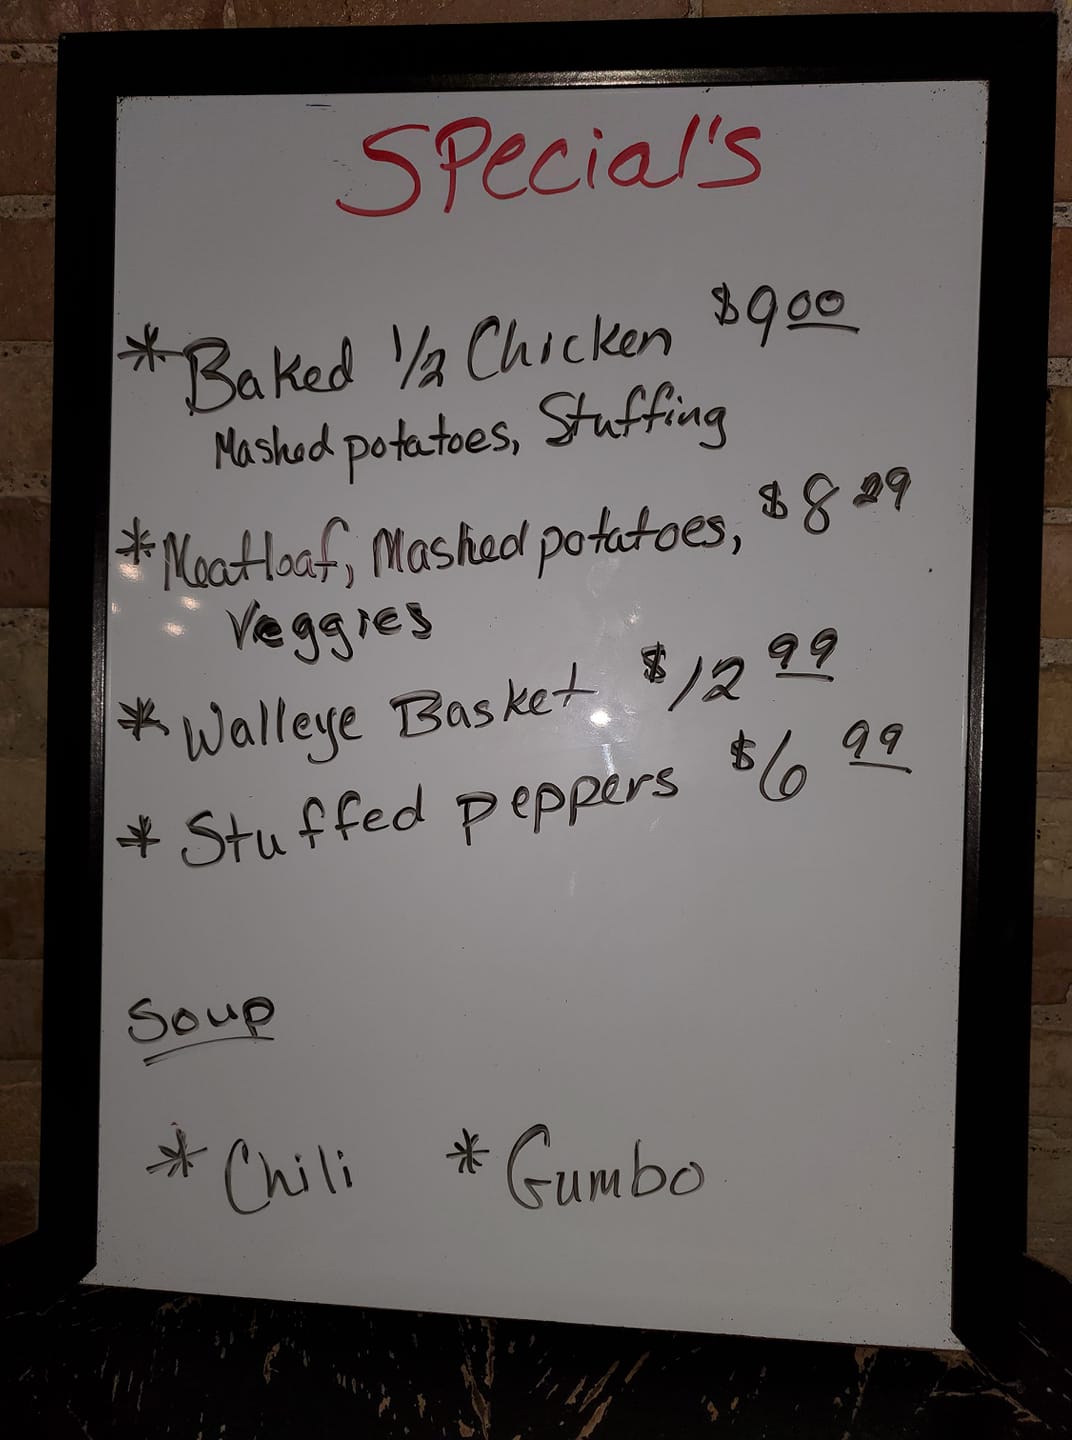 Special's
* Baked 1/2 Chicken $9.00
Mashed potatoes, Stuffing
* Meatloaf, Mashed potatoes, $8
Veggies
* Walleye Basket $12 99
* Stuffed peppers $6 99
Soup
* Chili * Gumbo